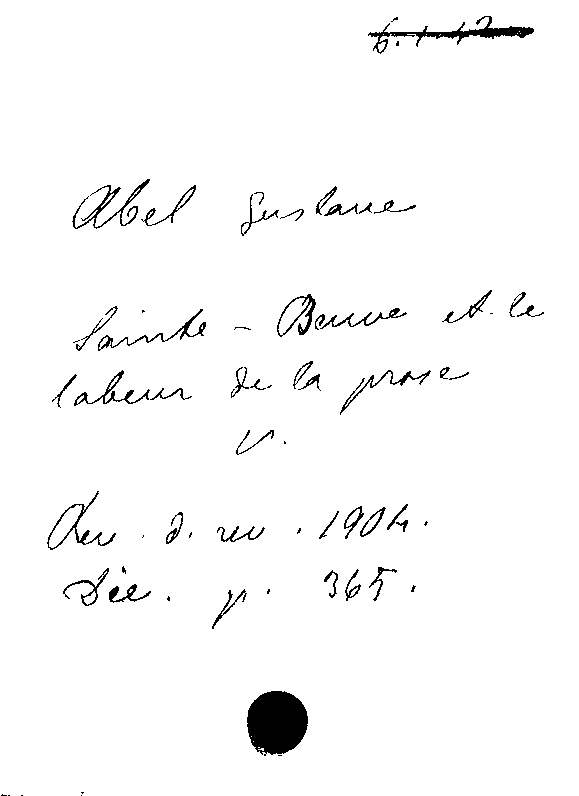 6. 1 42
Abel Gustave
Sainte-Beuve et le
labeur de la prose
V.
Rev. d. rev. 1904.
Déc. p. 365.